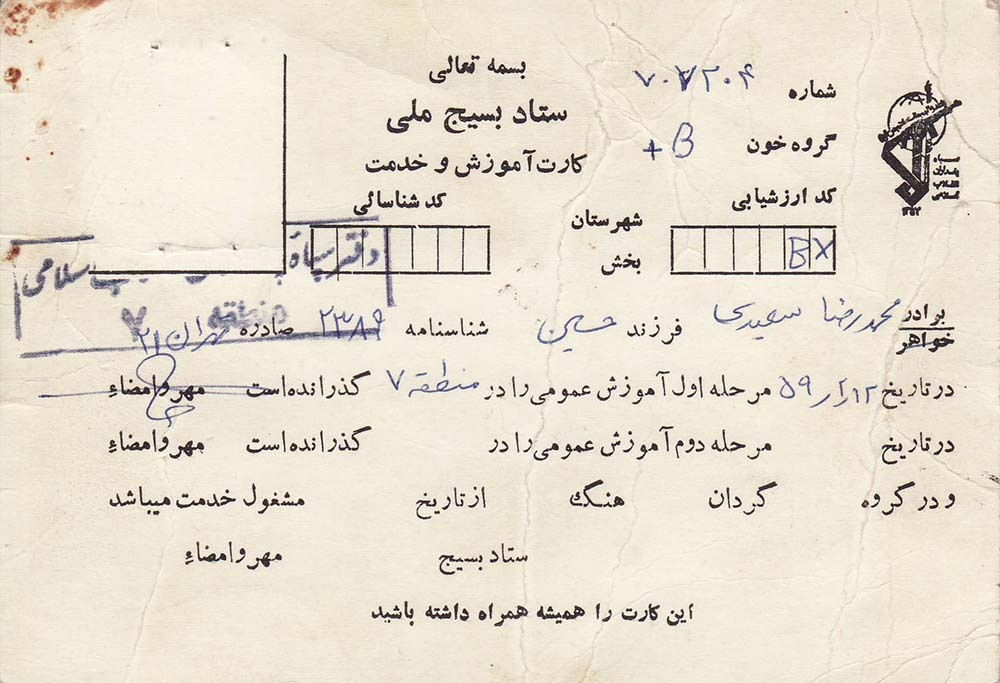 بسمه تعالی
ستاد بسیج ملی
کارت آموزش و خدمت
شماره ۷۰۷۲۰۴
گروه خون B +
کد ارزشیابی
BX
شهرستان
بخش
کد شناسائی
دفتر سپاه
سلامی
منطقه ۷
برادر
خواهر
محمدرضا سعیدی فرزند حسین شناسنامه ۲۳۸۹ صادره تهران ۲۱
در تاریخ ۵۹ مرحله اول آموزش عمومی را در منطقه ۷ گذرانده است مهر و امضاء
در تاریخ مرحله دوم آموزش عمومی را در گذرانده است مهر و امضاء
و در گروه گردان هنگ از تاریخ مشغول خدمت میباشد
ستاد بسیج مهر و امضاء
این کارت را همیشه همراه داشته باشید